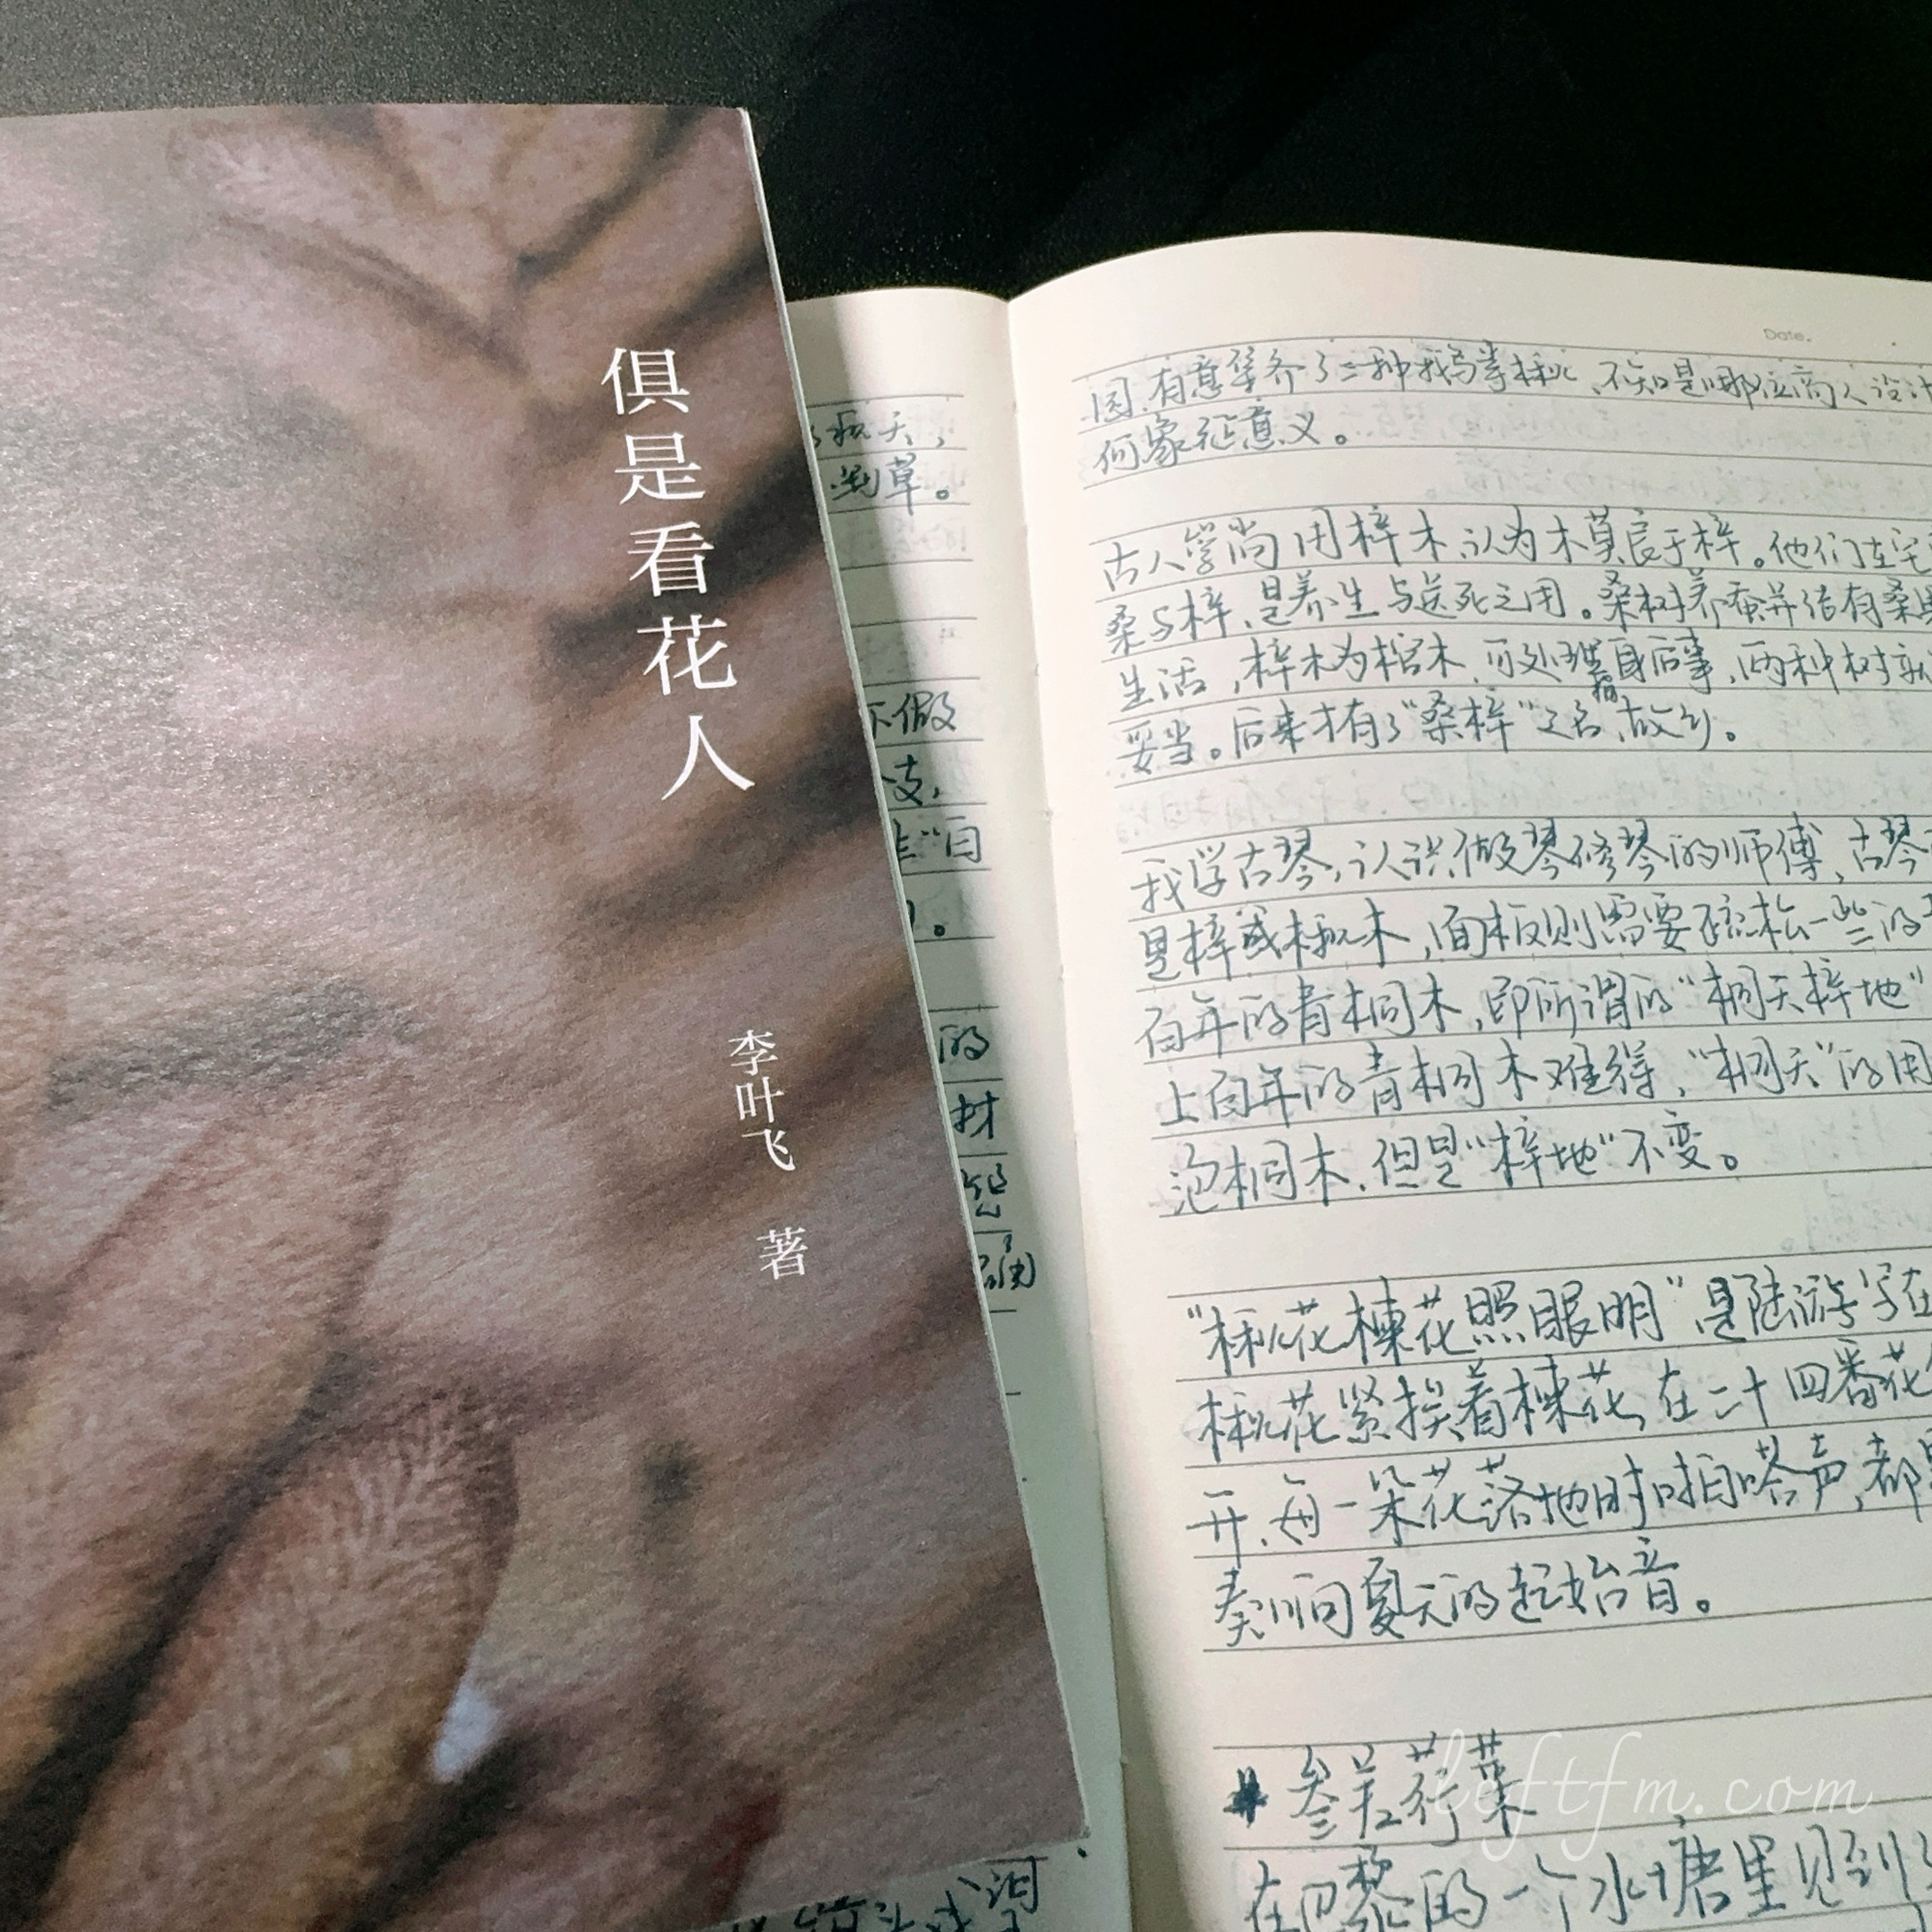 俱是看花人
李叶飞 著
草。
不做
支,
自
的
材
Date.
园,有意集齐了三种
何象征意义。
古人崇尚用梓木,认为木莫良于梓。他们在宅
桑与梓,是养生与送死之用。桑树养蚕并结有桑
生活,梓木为棺木,可处理身后事,两种树就
妥当。后来才有了“桑梓”之名,指故乡。
我学古琴,认识做琴修琴的师傅,古琴
是梓或楸木,面板则需要疏松一些的
百年的青桐木,即所谓的“桐天梓地”
上百年的青桐木难得,“桐天”的用
泡桐木,但是“梓地”不变。
“楸花楝花照眼明”是陆游写在
楸花紧挨着楝花,在二十四番花
开,每一朵花落地时啪嗒声,都
奏响夏天的起始音。
参差荇菜
在四黎的一个水塘里见到
leftfm.com